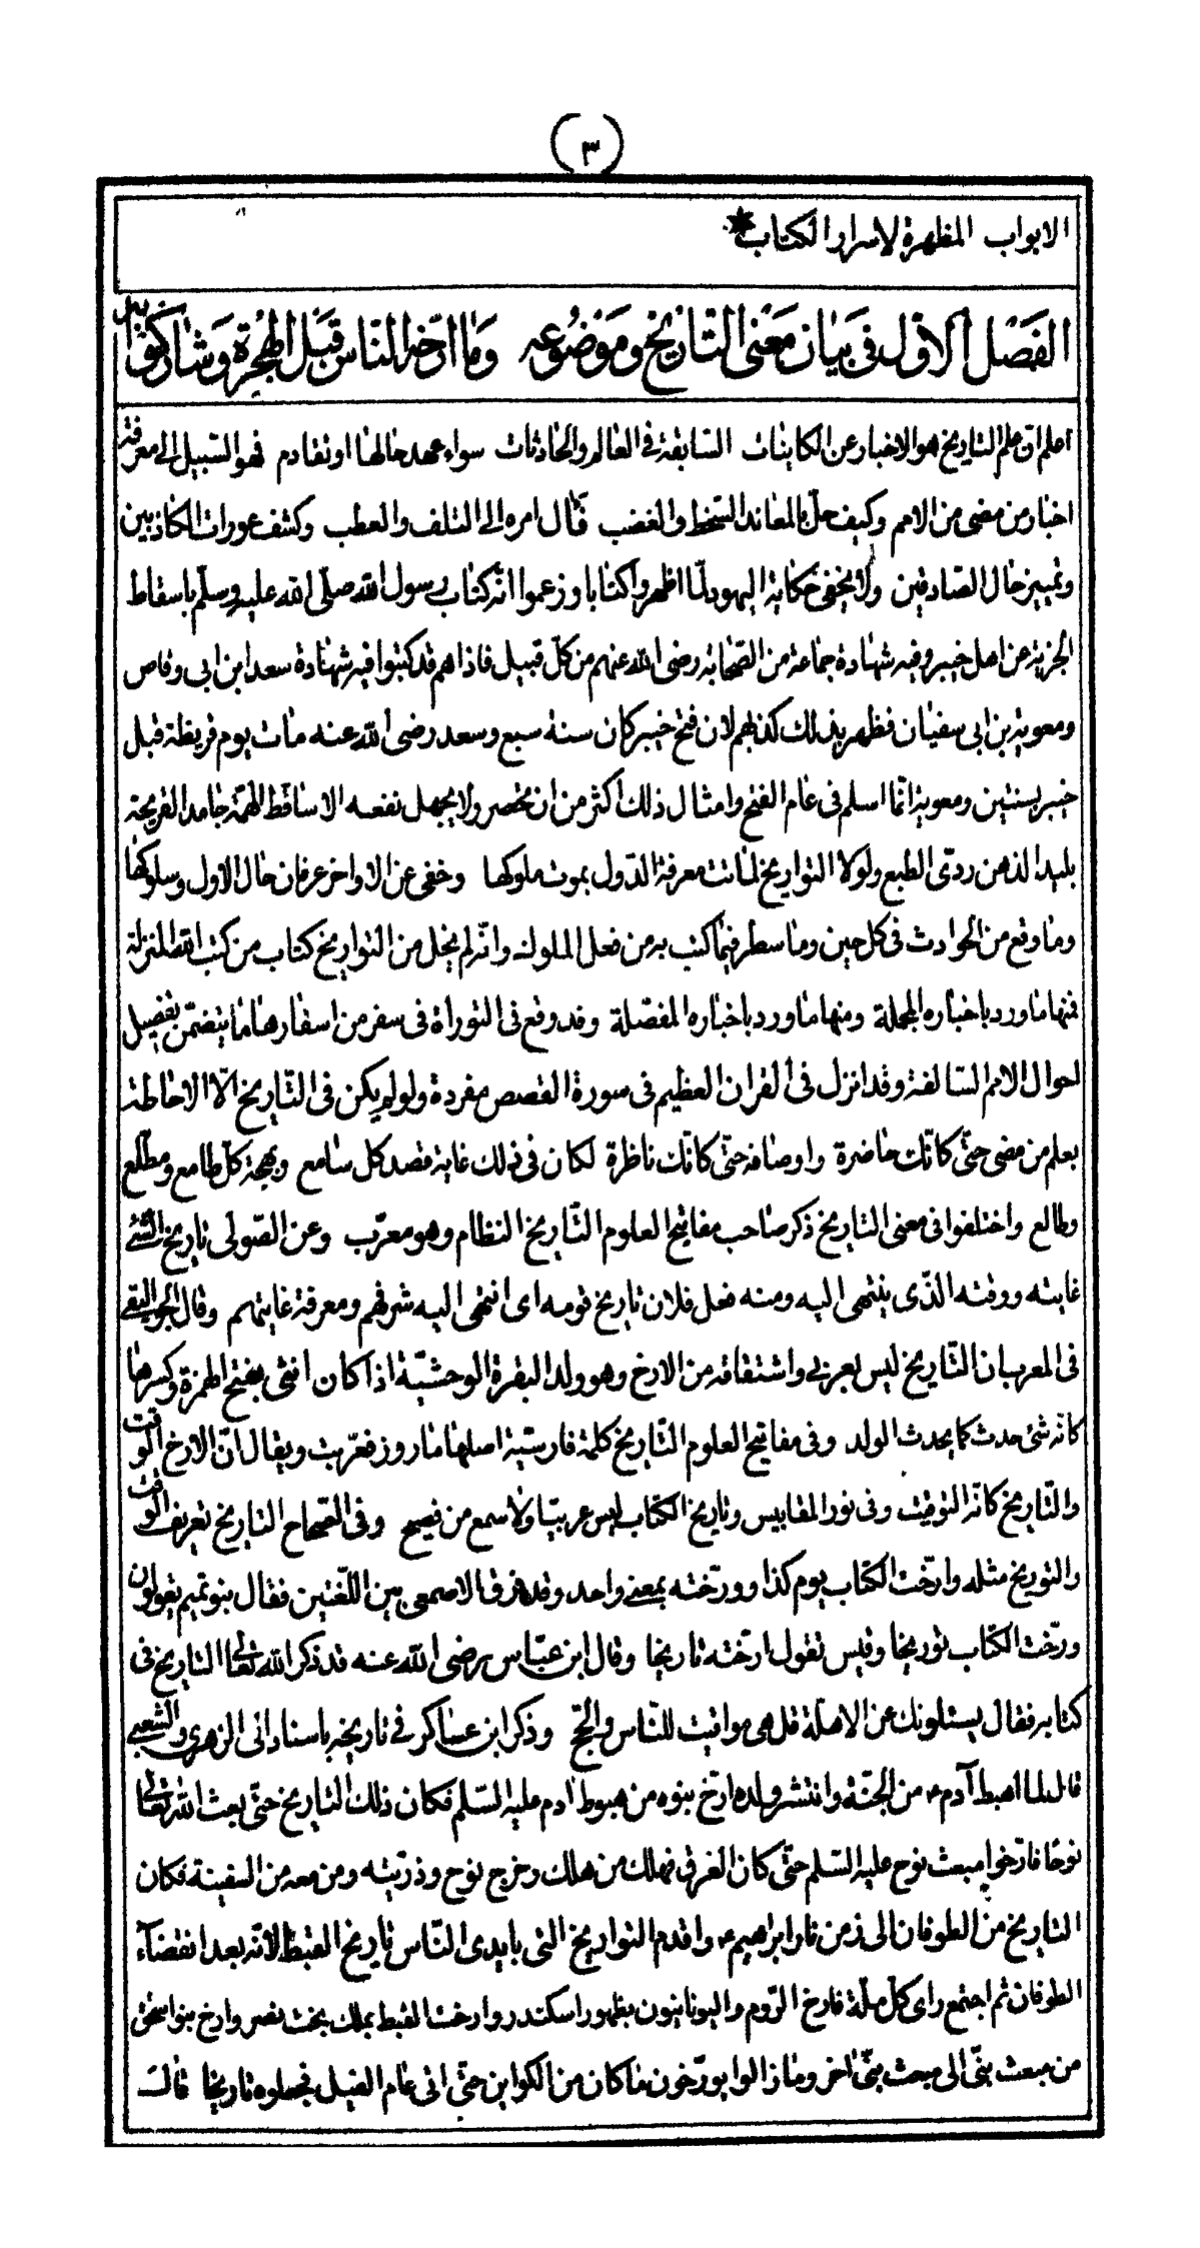 (٣)
الابواب المظهرة لاسرار الكتاب*
الفصل الاول فى بيان معنى التاريخ وموضوعه وما ارخه الناس قبل الهجرة وشاركنوا
اعلم ان علم التاريخ هو الاخبار عن الكاينات السابقة فى العالم والحادثات سواء عهد حالها او تقادم فهو السبيل الى معرفة
اخبار من مضى من الامم وكيف حل بالمعاند السخط والغضب فآل امره الى التلف والعطب وكشف عورات الكاذبين
وتمييز حال الصادقين ولا يخفى حكاية اليهود لمّا اظهروا كتابا وزعموا انّه كتاب رسول الله صلّى الله عليه وسلّم باسقاط
الجزية عن اهل خيبر وفيه شهادة جماعة من الصّحابة رضى الله عنهم من كلّ قبيل فاذا هم قد كتبوا فيه شهادة سعد ابن ابى وقاص
ومعوية بن ابى سفيان فظهر بذلك كذبهم لان فتح خيبر كان سنة سبع وسعد رضى الله عنه مات يوم قريظة قبل
خيبر بسنتين ومعوية انّما اسلم فى عام الفتح وامثال ذلك اكثر من ان تحصر ولا يجهل نفعه الا ساقط الهمّة جامد القريحة
بليد الذهن ردىّ الطبع ولولا التواريخ لماتت معرفة الدّول بموت ملوكها وخفى عن الاواخر عرفان حال الاول وسلوكها
وما وقع من الحوادث فى كل حين وما سطر فيما كتب به من فعل الملوك وانّه لم يخل من التواريخ كتاب من كتب الله المنزلة
فمنها ما ورد باخباره المجملة ومنها ما ورد باخباره المفصّلة وقد وقع فى التوراة فى سفر من اسفارها ما يتضمّن تفصيل
احوال الامم السّالفة وقد انزل فى القران العظيم فى سورة القصص مفردة ولو لم يكن فى التّاريخ الّا الاحاطة
بعلم من مضى حتّى كانّك حاضرة واوصافه حتّى كانّك ناظرة لكان فى ذلك غاية قصد كل سامع وبهجة كلّ طامع ومطّلع
وطالع واختلفوا فى معنى التاريخ ذكر صاحب مفاتيح العلوم التّاريخ النظام وهو معرّب وعن الصّولى تاريخ الشئ
غايته ووقته الذّى ينتهى اليه ومنه فعل فلان تاريخ قومه اى انتهى اليه شرفهم ومعرفة غايتهم وقال الجواليقى
فى المعرب ان التّاريخ ليس بعربى واشتقاقه من الارخ وهو ولد البقرة الوحشيّة اذا كان انثى بفتح الهمزة وكسرها
كانّه شئ حدث كما يحدث الولد وفى مفاتيح العلوم التّاريخ كلمة فارسيّة اصلها ماروز فعرّبت ويقال انّ الارخ الوقت
والتّاريخ كانّه التوقيت وفى نور المقابيس وتاريخ الكتاب ليس عربيّا ولا سمع من فصيح وفى الصّحاح التاريخ تعريف الوقت
والتوريخ مثله وارّخت الكتاب يوم كذا وورّخته بمعنى واحد وقد فرق الاصمعى بين اللّغتين فقال بنو تميم يقولون
ورّخت الكتاب توريخا وقيس تقول ارّخته تاريخا وقال ابن عبّاس رضى الله عنه قد ذكر الله تعالى التاريخ فى
كتابه فقال يسئلونك عن الاهلّة قل هى مواقيت للنّاس والحجّ وذكر ابن عساكر فى تاريخه باسناد الى الزهرى والشعبى
قالا لما اهبط آدم ع من الجنّة وانتشر ولده ارّخ بنوه من هبوط ادم عليه السّلم فكان ذلك التاريخ حتّى بعث الله تعالى
نوحا فارّخوا بمبعث نوح عليه السّلم حتّى كان الغرق فهلك من هلك وخرج نوح وذريّته ومن معه من السفينة فكان
التاريخ من الطوفان الى زمن نار ابراهيم ع واقدم التواريخ التى بايدى النّاس تاريخ القبط لانّه بعد انقضآء
الطوفان ثم اجتمع راى كلّ ملّة فارخ الرّوم واليونانيون بظهور اسكندر وارخت القبط بملك بخت نصر وارخ بنو اسحق
من مبعث نبىّ الى مبعث نبىّ اخر وما زالوا يورّخون ما كان من الكواين حتّى اتى عام الفيل فجعلوه تاريخا قالت